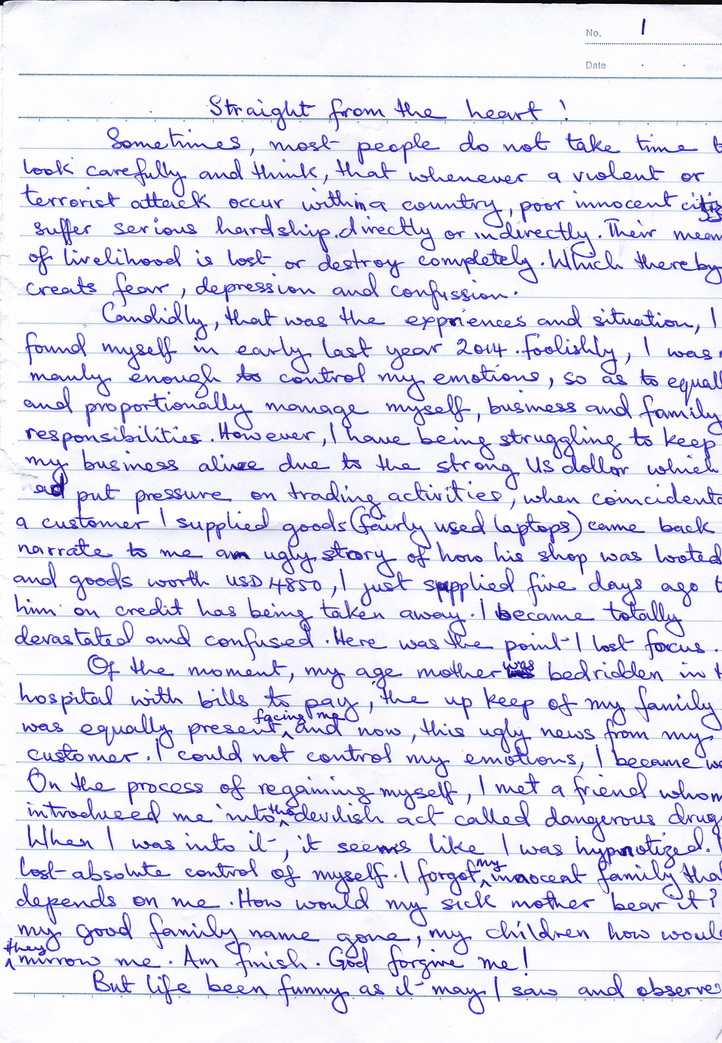 No. 1
Date
Straight from the heart!
Sometimes, most people do not take time t
look carefully and think, that whenever a violent or
terrorist attack occur within a country, poor innocent
suffer serious hardship directly or indirectly. Their mean
of livelihood is lost or destroy completely. Which thereby
creats fear, depression and confussion.
Candidly, that was the expriences and situation, I
found myself in early last year 2014. foolishly, I was
manly enough to control my emotions, so as to equall
and proportionally manage myself, business and family
responsibilities. However, I have being struggling to keep
my business alive due to the strong US dollar which
ad put pressure on trading activities, when coincidenta
a customer I supplied goods (fairly used laptops) came back
narrate to me an ugly story of how his shop was looted
and goods worth USD 4850, I just supplied five days ago t
him on credit has being taken away. I became totally
devastated and confused. Here was the point I lost focus.
Of the moment, my age mother was bedridden in t
hospital with bills to pay, the up keep of my family
was equally present facing me and now, this ugly news from my
customer. I could not control my emotions, I became we
On the process of regaining myself, I met a friend whom
introduced me into the devilish act called dangerous drug
When I was into it, it seems like I was hypnotized.
lost absolute control of myself. I forgot my innocent family tha
depends on me. How would my sick mother bear it?
my good family name gone, my children how woul
they mirrow me. Am finish. God forgive me!
But life been funny as it may I saw and observe